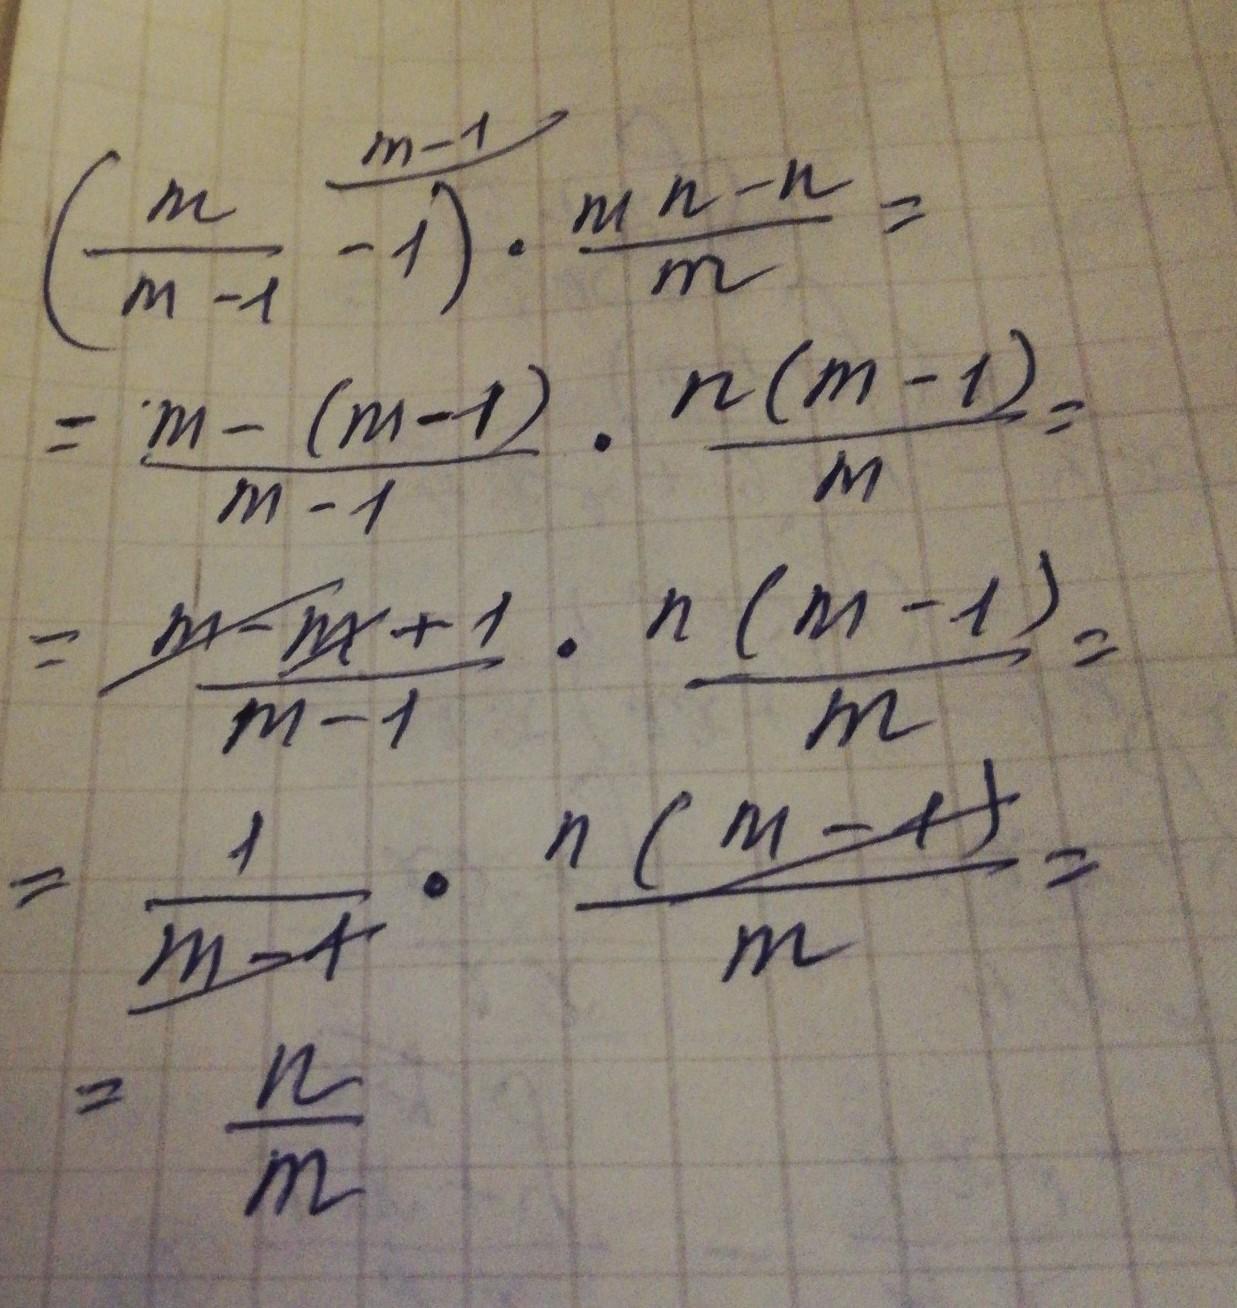 (m/(m-1) - 1^(m-1)) · (mn-n)/m =
= (m-(m-1))/(m-1) · n(m-1)/m =
= (m-m+1)/(m-1) · n(m-1)/m =
= 1/(m-1) · n(m-1)/m =
= n/m